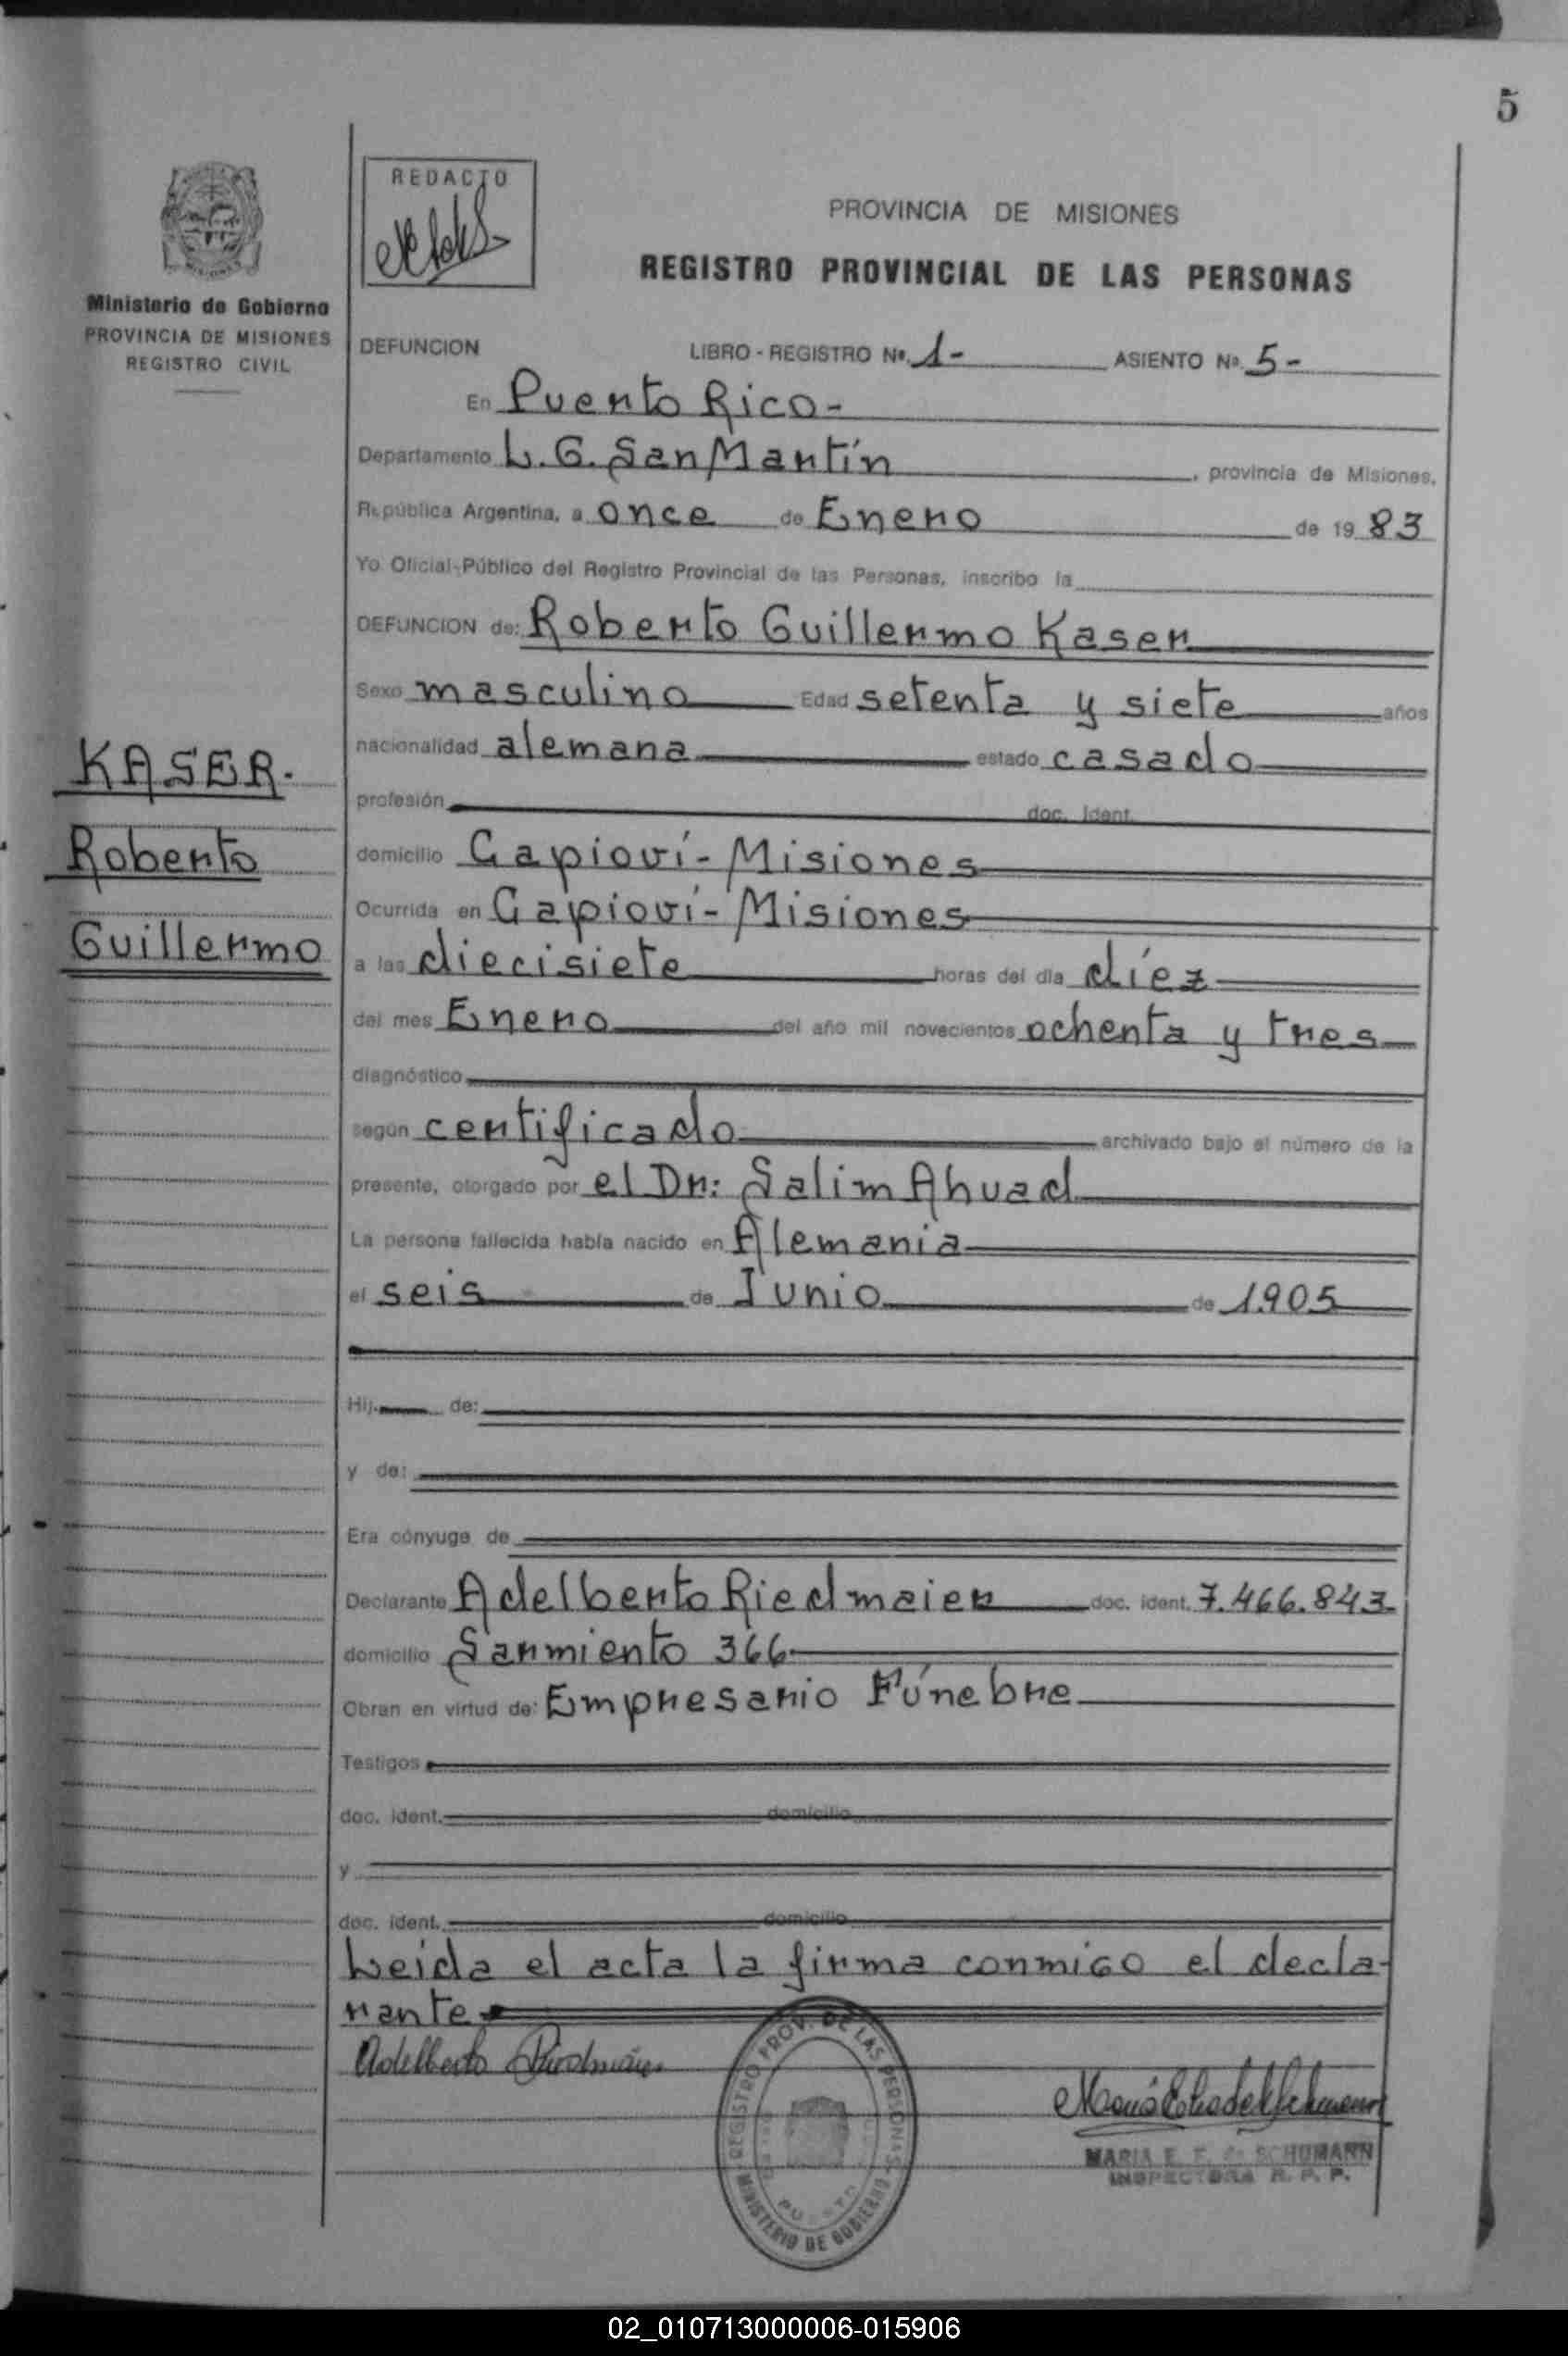 5
REDACTO
PROVINCIA DE MISIONES
REGISTRO PROVINCIAL DE LAS PERSONAS
Ministerio de Gobierno
PROVINCIA DE MISIONES
REGISTRO CIVIL
DEFUNCION LIBRO - REGISTRO Nº. 1- ASIENTO Nº 5-
En Puerto Rico-
Departamento L. G. San Martín, provincia de Misiones,
República Argentina, a once de Enero de 19 83
Yo Oficial Público del Registro Provincial de las Personas, inscribo la
DEFUNCION de: Roberto Guillermo Kaser
Sexo masculino Edad setenta y siete años
nacionalidad alemana estado casado
profesión doc. ident.
domicilio Capioví - Misiones
Ocurrida en Capioví - Misiones
a las diecisiete horas del día díez
del mes Enero del año mil novecientos ochenta y tres
diagnóstico
según certificado archivado bajo el número de la
presente, otorgado por el Dr: Salim Ahuad
La persona fallecida había nacido en Alemania
el seis de Junio de 1.905
Hij de:
y de:
Era cónyuge de
Declarante Adelberto Riedmaier doc. ident. 7.466.843
domicilio Sarmiento 366
Obran en virtud de: Empresario Fúnebre
Testigos
doc. ident. domicilio
y
doc. ident. domicilio
Leida el acta la firma conmigo el decla-
rante
KASER.
Roberto
Guillermo
Adelberto Riedmaier
REGISTRO PROV. DE LAS PERSONAS
MINISTERIO DE GOBIERNO
MARIA E. F. de SCHUMANN
INSPECTORA R. P. P.
02_010713000006-015906